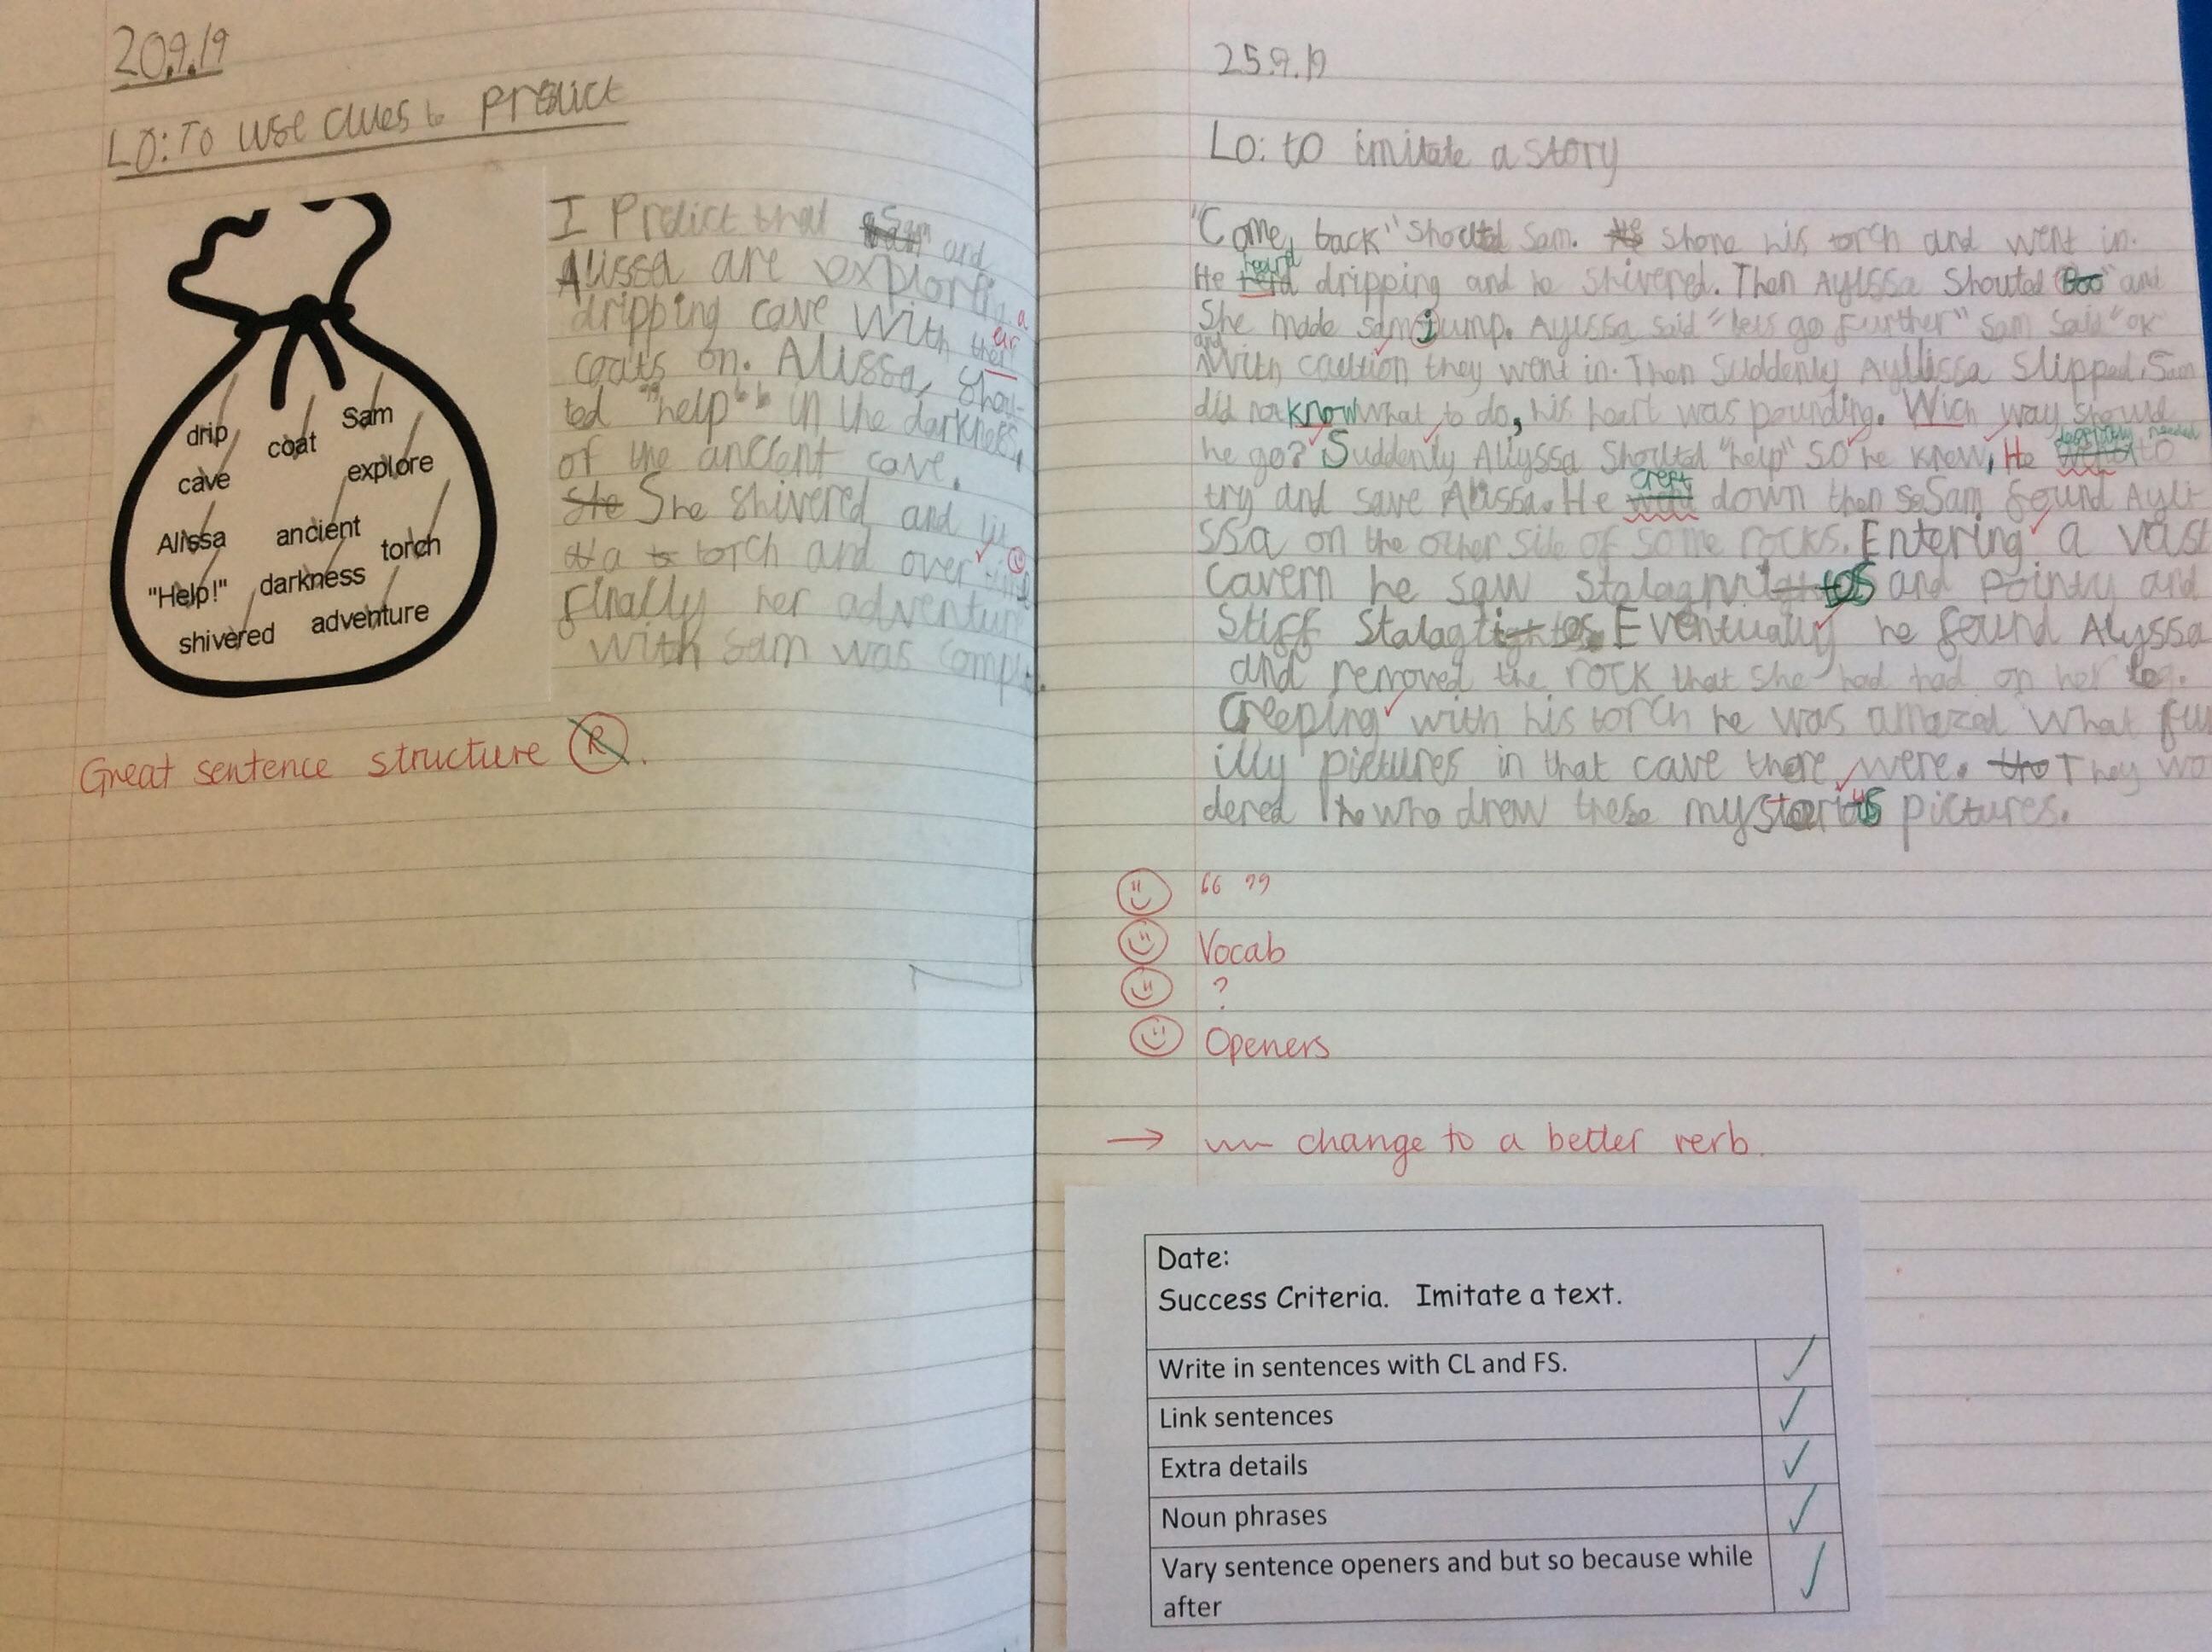 20.9.19
LO: To use clues to predict
drip
coat
Sam
cave
explore
Alissa
ancient
torch
"Help!"
darkness
shivered
adventure
I Predict that Sam and
Alissa are explorin a
dripping cave with their
coats on. Alissa, shou-
ted "help" in the darkness,
of the ancient cave.
She She shivered and
a torch and over
finally her adventur
with Sam was comp
Great sentence structure R.
25.9.19
Lo: to imitate a story
"Come, back" shouted Sam. He shone his torch and went in.
He heard dripping and he shivered. Then Aylssa shouted "Boo" and
She made sam jump. Ayissa said "lets go further" Sam said "ok"
and With caution they went in. Then Suddenly Ayllissa slipped. Sam
did not know what to do, his heart was pounding. Wich way should
he go? Suddenly Allyssa Shouted "help" So he knew, He needed to
try and save Alissa. He crept down then Sam found Ayli-
ssa on the other side of some rocks. Entering a vast
cavern he saw Stalagmites and pointy and
Stiff Stalagtites. Eventually he found Alyssa
and removed the rock that she had had on her leg.
Creeping with his torch he was amazed what fu
illy pictures in that cave there were. the They wo
dered who drew these mysterius pictures.
“ ”
Vocab
?
Openers
→ change to a better verb.
Date:
Success Criteria. Imitate a text.
Write in sentences with CL and FS. ✓
Link sentences ✓
Extra details ✓
Noun phrases ✓
Vary sentence openers and but so because while
after ✓